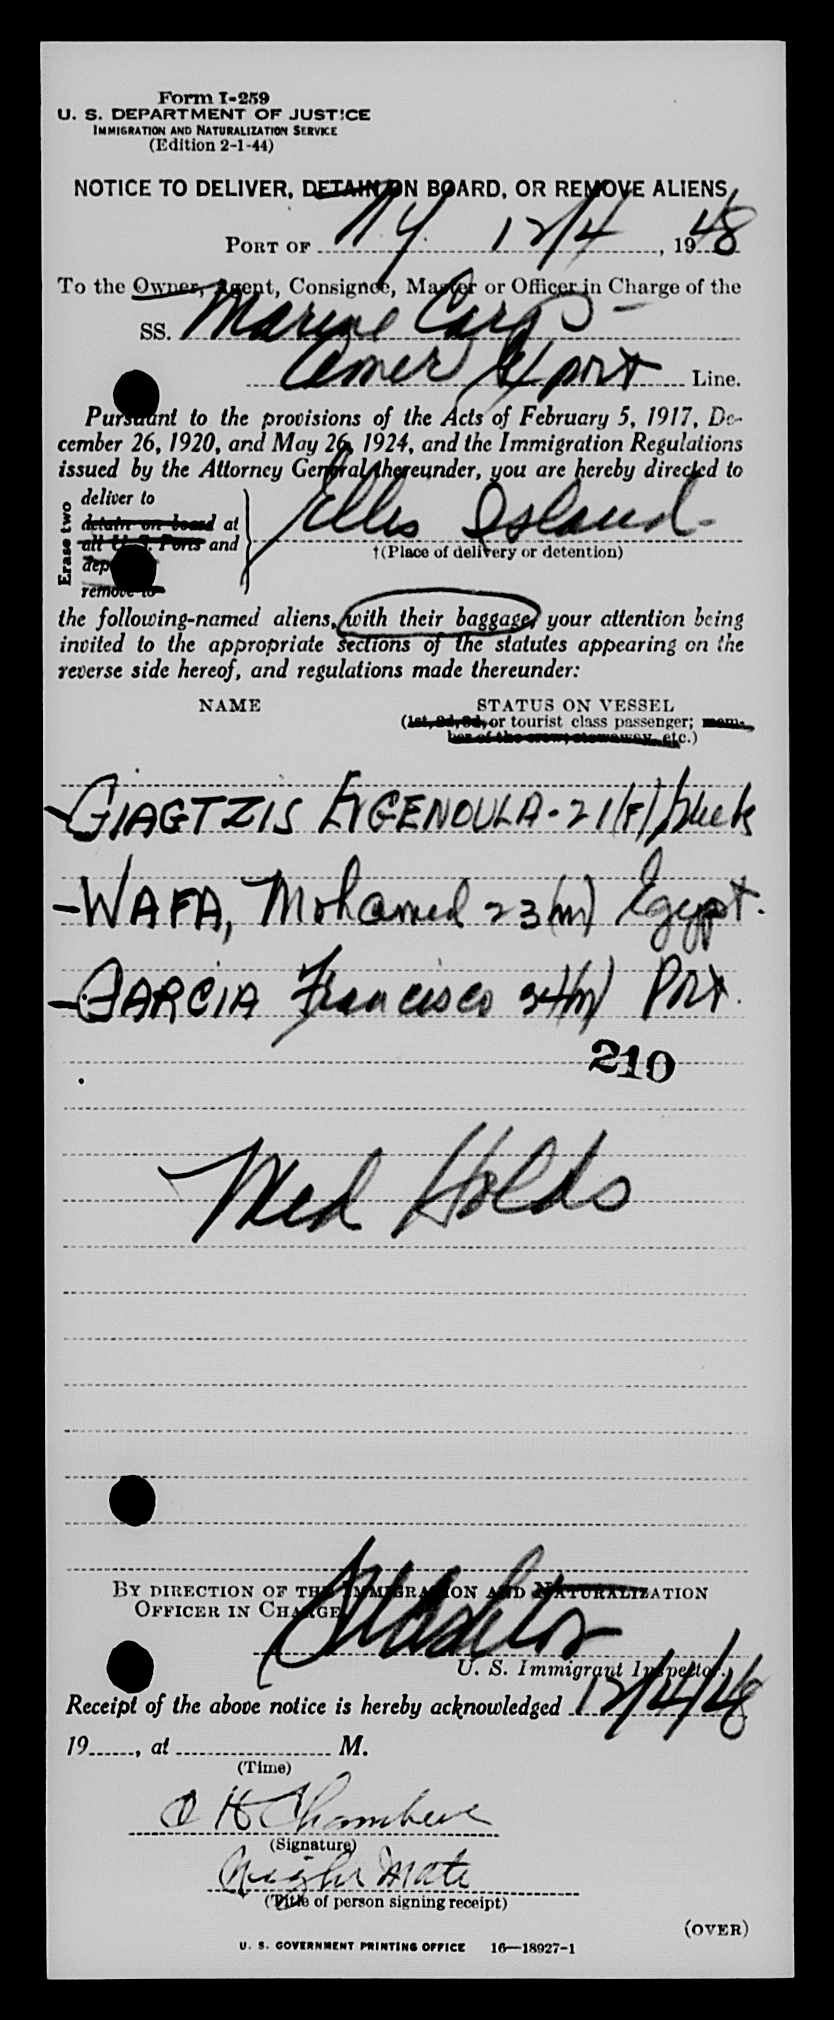 Form I-259
U. S. DEPARTMENT OF JUSTICE
IMMIGRATION AND NATURALIZATION SERVICE
(Edition 2-1-44)
NOTICE TO DELIVER, DETAIN ON BOARD, OR REMOVE ALIENS
PORT OF NY. 12/4, 1948
To the Owner, Agent, Consignee, Master or Officer in Charge of the
SS. Marine Carp -
Amer Export Line.
Pursuant to the provisions of the Acts of February 5, 1917, De-
cember 26, 1920, and May 26, 1924, and the Immigration Regulations
issued by the Attorney General thereunder, you are hereby directed to
Erase two
deliver to
detain on board at
all U. S. Ports and
dep
remove to
Ellis Island-
†(Place of delivery or detention)
the following-named aliens, with their baggage, your attention being
invited to the appropriate sections of the statutes appearing on the
reverse side hereof, and regulations made thereunder:
NAME STATUS ON VESSEL
(1st, 2d, 3d, or tourist class passenger; mem-
ber of the crew; stowaway, etc.)
- GIAGTZIS EVGENOULA - 21 (F)
- WAFA, Mohamed 23 (m) Egypt.
- GARCIA Francisco 34 (m) Port.
210
Med Holds
BY DIRECTION OF THE IMMIGRATION AND NATURALIZATION
OFFICER IN CHARGE
U. S. Immigrant Inspector.
Receipt of the above notice is hereby acknowledged 12/4/48
19......, at .................... M.
(Time)
O H Chambers
(Signature)
Night Mate
(Title of person signing receipt)
(OVER)
U. S. GOVERNMENT PRINTING OFFICE 16—18927-1